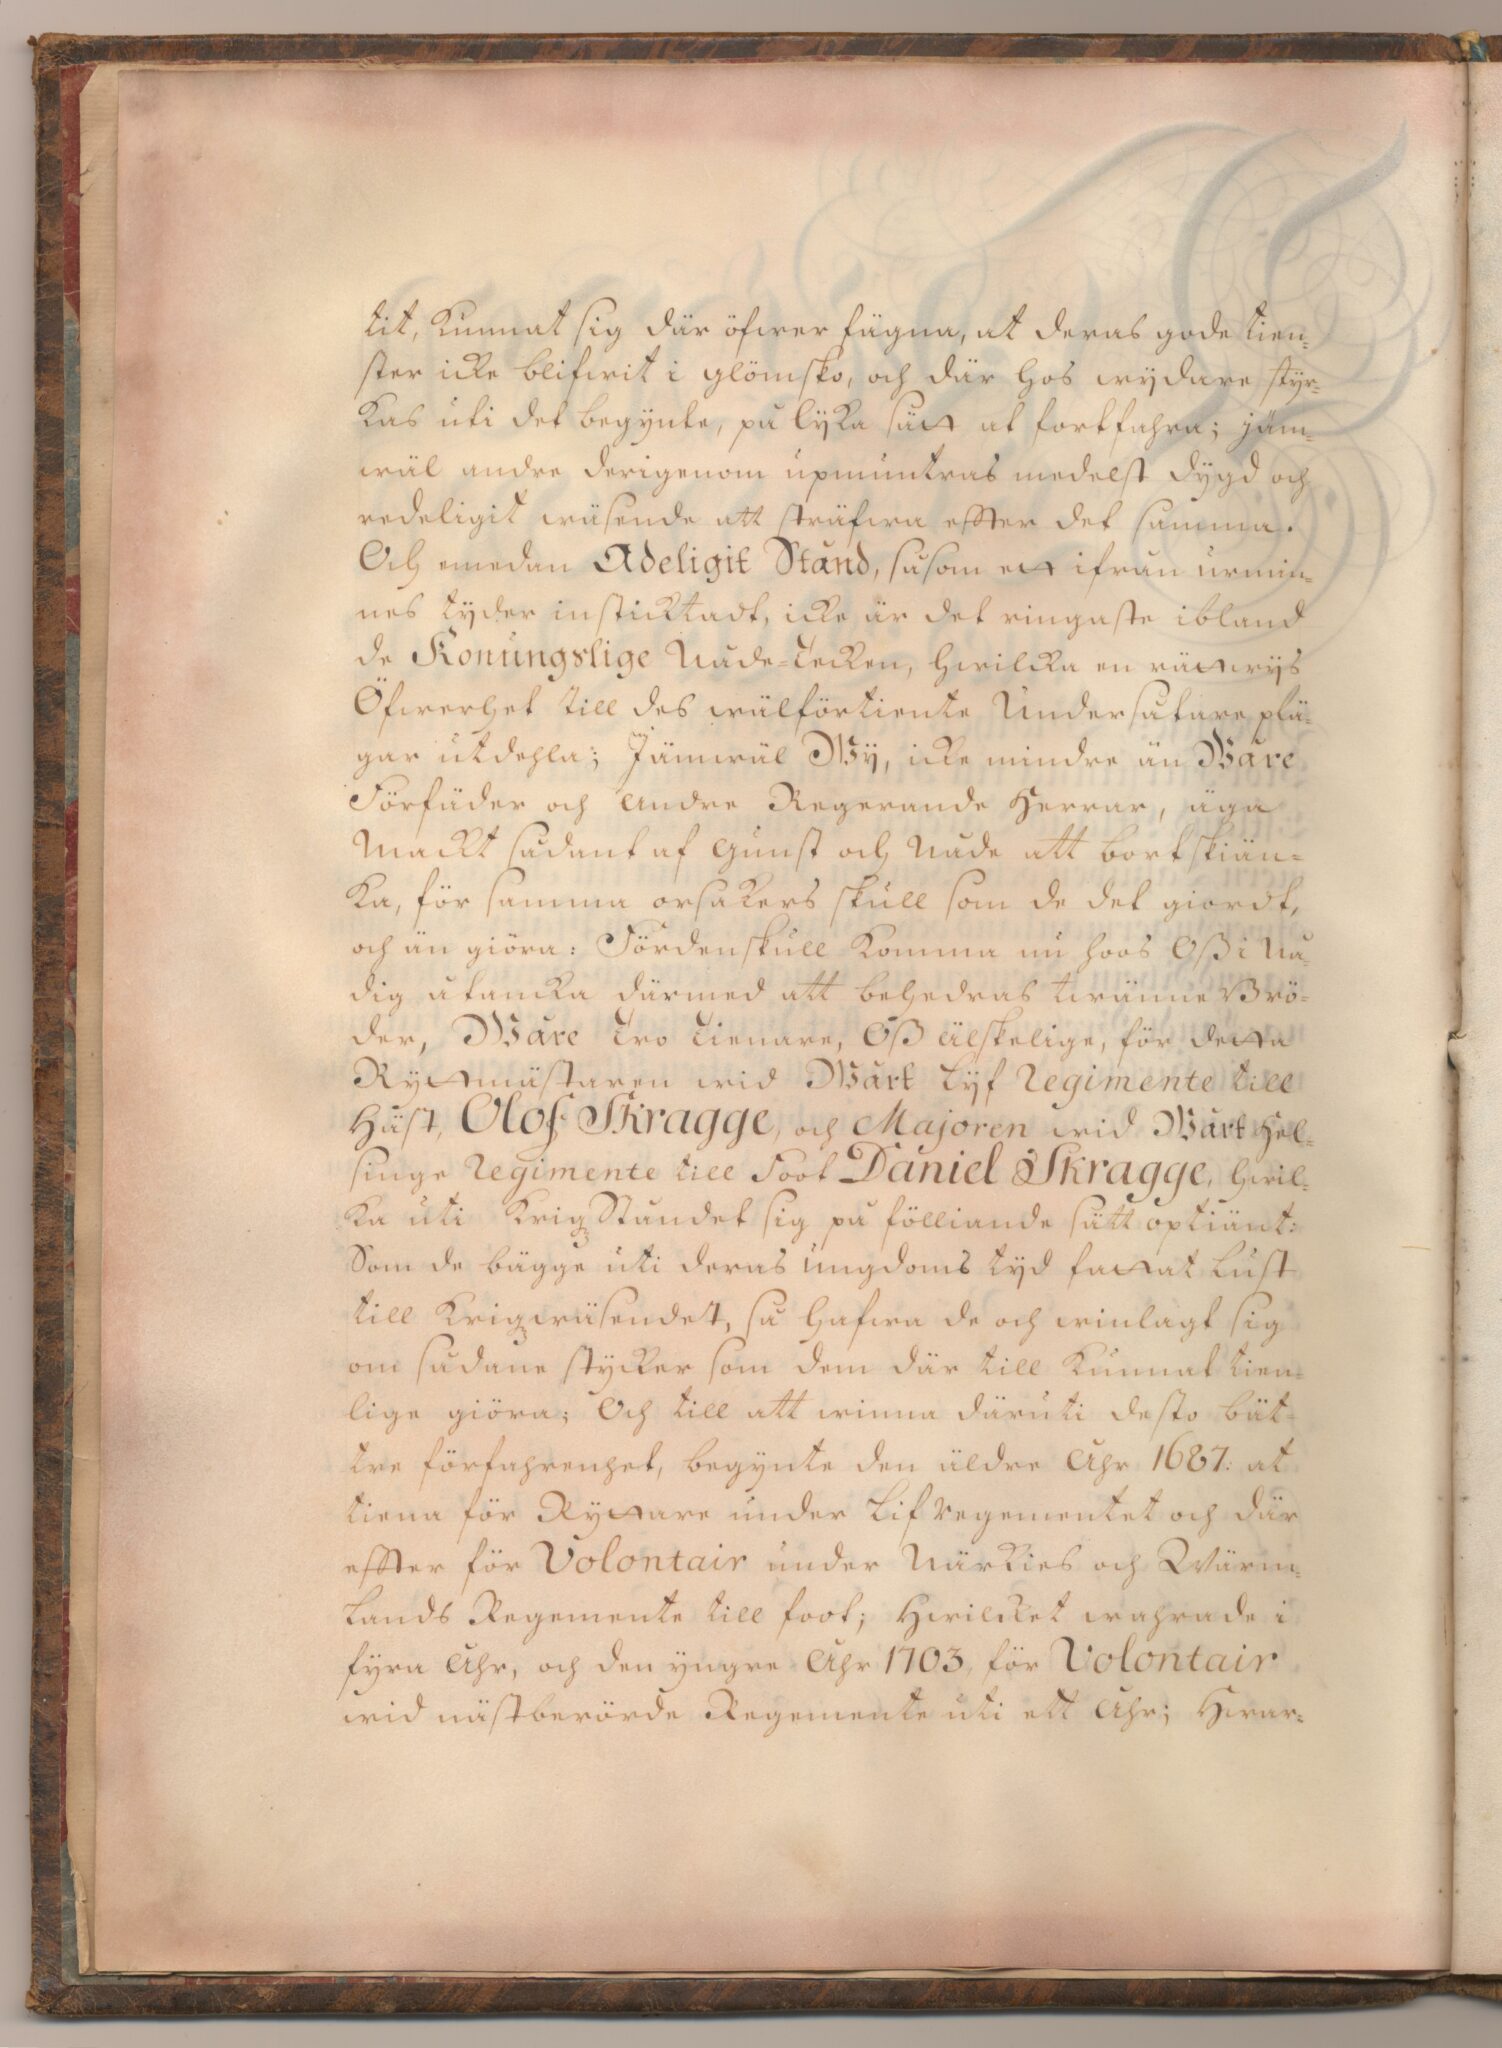 tit, kunnat sig där öfwer fägna, at deras gode tien-
ster icke blifwit i glömsko, och där hos wydare styr-
kas uti det begynte, på lyka sätt at fortfahra; jäm-
wäl andre derigenom upmuntras medelst dygd och
redeligit wäsende att sträfwa effter det samma.
Och emedan Adeligit Stånd, såsom ett ifrån urmin-
nes tyder insticktadt, icke är det ringaste ibland
de Konungslige Nåde-tecken, hwilcka en rättwys
Öfwerhet till des wälförtiente Undersåtare plä-
gar utdehla; Jämwäl Wy, icke mindre än Wåre
Förfäder och Andre Regerande Herrar, äga
Mackt sådant af Gunst och Nåde att bortskiän-
ka, för samma orsakers skull som de det giordt,
och än giöra: Fördenskull komma nu hoos Oß i Nå-
dig åtancka därmed att behedras twänne Brö-
der, Wåre Tro Tienare, Oß Älskelige, för detta
Ryttmästaren wid Wårt Lyf Regimente till
Häst, Olof Skragge, och Majoren wid Wårt Hel-
singe Regimente till Foot Daniel Skragge, hwil-
ka uti Krigz Ståndet sig på fölliande sätt optiänt:
Som de bägge uti deras ungdoms tyd fattat Lust
till Krigzwäsendet, så hafwa de och winlagt sig
om sådane stycker som dem där till kunnat tien-
lige giöra; Och till att winna däruti desto bät-
tre förfahrenhet, begynte den äldre Åhr 1687: at
tiena för Ryttare under Lif regementet och där
effter för Volontair under Närkies och Wärm-
Lands Regemente till foot; Hwilcket wahrade i
fyra Åhr, och den yngre Åhr 1703, för Volontair
wid nästberörde Regemente uti ett Åhr; Hwar-